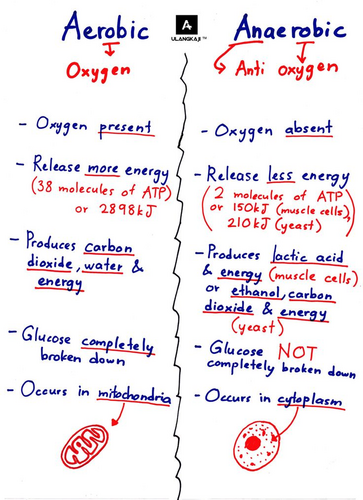 Aerobic
Oxygen
- Oxygen present
- Release more energy
(38 molecules of ATP)
or 2898kJ
- Produces carbon
dioxide, water &
energy
- Glucose completely
broken down
- Occurs in mitochondria
A
ULANGKAJI™
Anaerobic
Anti oxygen
- Oxygen absent
- Release less energy
(2 molecules of ATP
or 150kJ (muscle cells),
210kJ (yeast))
- Produces lactic acid
& energy (muscle cells)
or ethanol, carbon
dioxide & energy
(yeast)
- Glucose NOT
completely broken down
- Occurs in cytoplasm